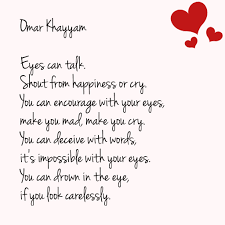 Omar Khayyam
Eyes can talk.
Shout from happiness or cry.
You can encourage with your eyes,
make you mad, make you cry.
You can deceive with words,
it's impossible with your eyes.
You can drown in the eye,
if you look carelessly.